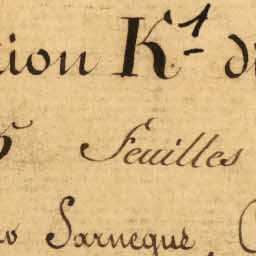 tion K¹ di
5 Feuilles
Sarnegue,